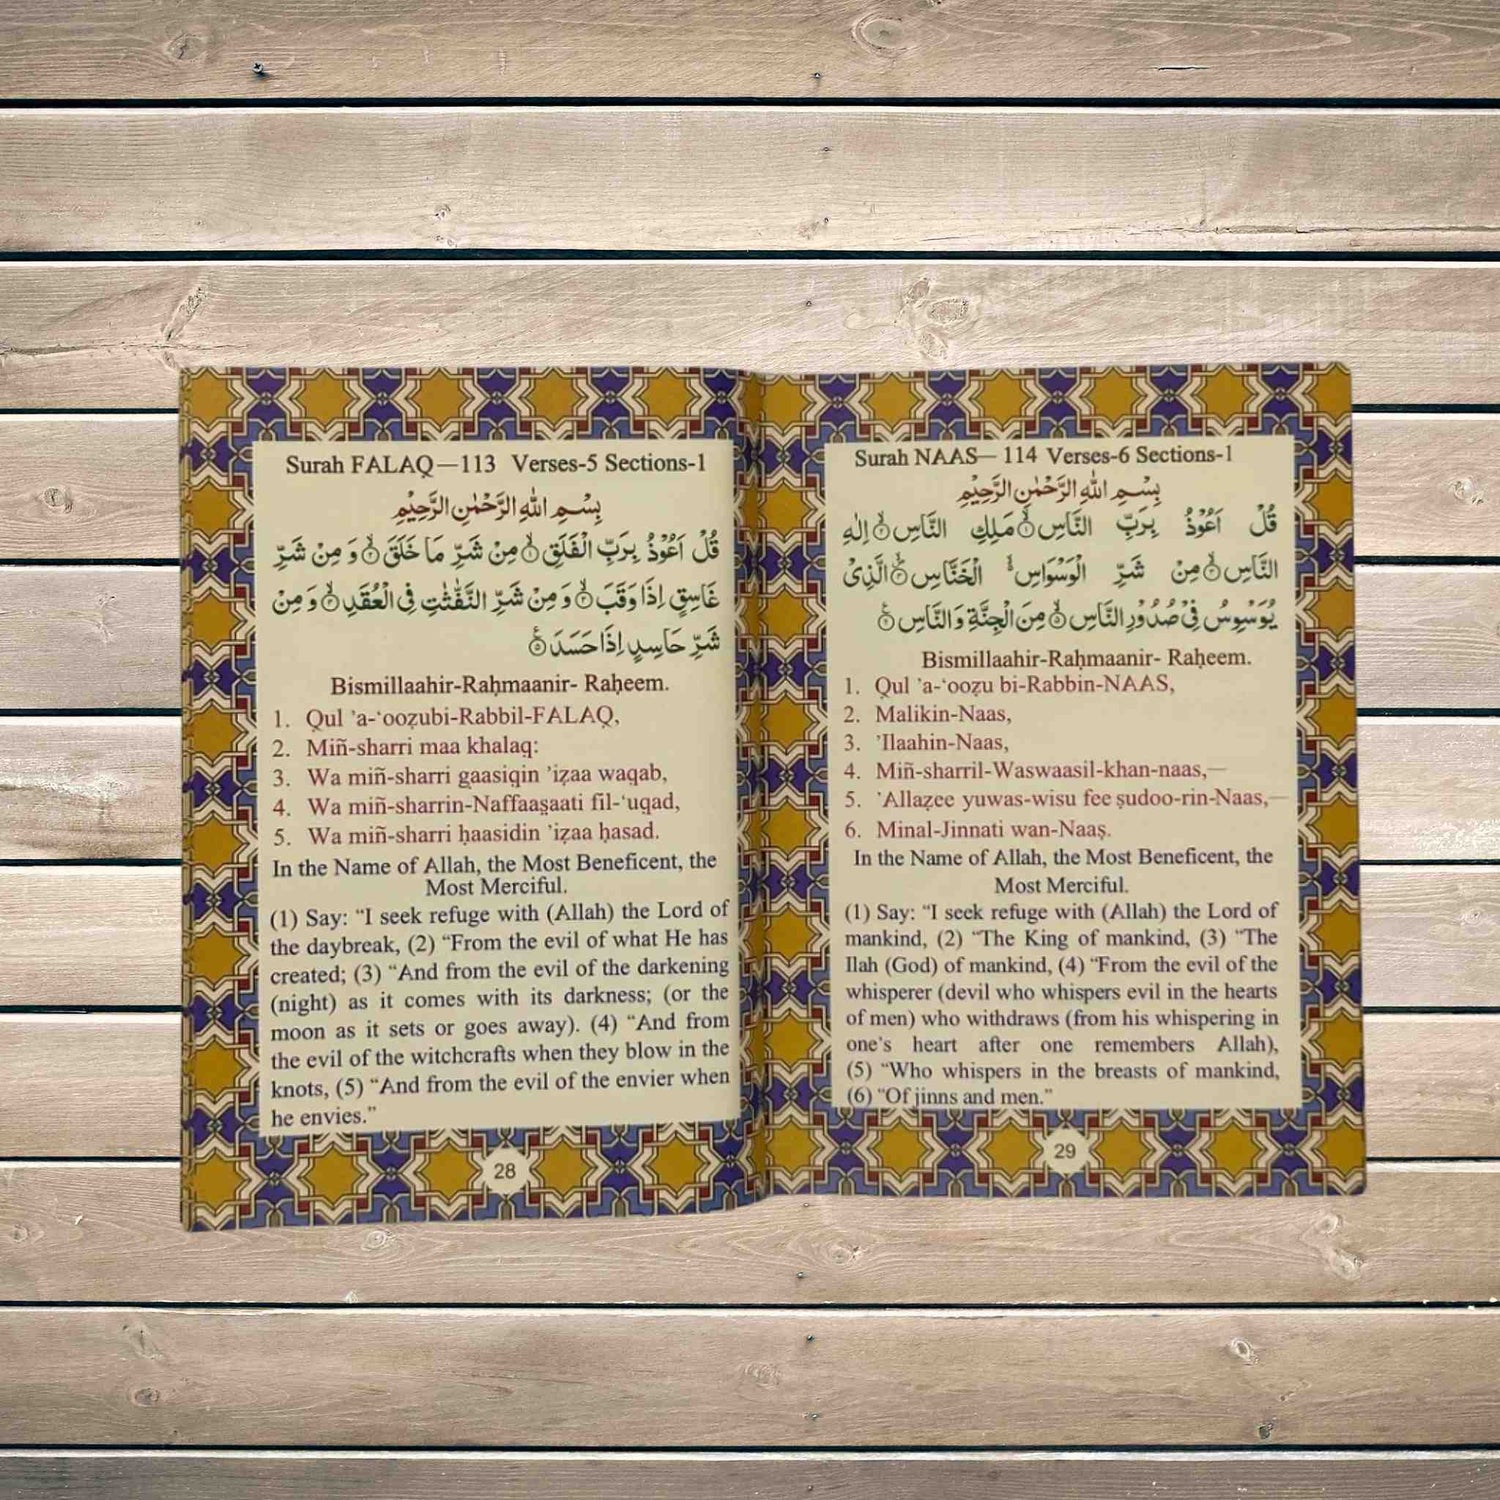 Surah FALAQ—113 Verses-5 Sections-1
بِسْمِ اللّٰهِ الرَّحْمٰنِ الرَّحِيْمِ
قُلْ اَعُوْذُ بِرَبِّ الْفَلَقِ ۙ﴿۱﴾ مِنْ شَرِّ مَا خَلَقَ ۙ﴿۲﴾ وَ مِنْ شَرِّ
غَاسِقٍ اِذَا وَقَبَ ۙ﴿۳﴾ وَ مِنْ شَرِّ النَّفّٰثٰتِ فِی الْعُقَدِ ۙ﴿۴﴾ وَ مِنْ
شَرِّ حَاسِدٍ اِذَا حَسَدَ ﴿۵﴾
Bismillaahir-Raḥmaanir- Raḥeem.
1. Qul ’a-‘ooẓubi-Rabbil-FALAQ,
2. Miñ-sharri maa khalaq:
3. Wa miñ-sharri g̣aasiqin ’iẓaa waqab,
4. Wa miñ-sharrin-Naffaaṣaati fil-‘uqad,
5. Wa miñ-sharri ḥaasidin ’iẓaa ḥasad.
In the Name of Allah, the Most Beneficent, the
Most Merciful.
(1) Say: “I seek refuge with (Allah) the Lord of
the daybreak, (2) “From the evil of what He has
created; (3) “And from the evil of the darkening
(night) as it comes with its darkness; (or the
moon as it sets or goes away). (4) “And from
the evil of the witchcrafts when they blow in the
knots, (5) “And from the evil of the envier when
he envies.”
28
Surah NAAS— 114 Verses-6 Sections-1
بِسْمِ اللّٰهِ الرَّحْمٰنِ الرَّحِيْمِ
قُلْ اَعُوْذُ بِرَبِّ النَّاسِ ۙ﴿۱﴾ مَلِكِ النَّاسِ ۙ﴿۲﴾ اِلٰهِ
النَّاسِ ۙ﴿۳﴾ مِنْ شَرِّ الْوَسْوَاسِ ۙ الْخَنَّاسِ ﴿۴﴾ الَّذِیْ
یُوَسْوِسُ فِیْ صُدُوْرِ النَّاسِ ۙ﴿۵﴾ مِنَ الْجِنَّةِ وَ النَّاسِ ﴿۶﴾
Bismillaahir-Raḥmaanir- Raḥeem.
1. Qul ’a-‘ooẓu bi-Rabbin-NAAS,
2. Malikin-Naas,
3. ’Ilaahin-Naas,
4. Miñ-sharril-Waswaasil-khan-naas,—
5. ’Allaẓee yuwas-wisu fee ṣudoo-rin-Naas,—
6. Minal-Jinnati wan-Naaṣ.
In the Name of Allah, the Most Beneficent, the
Most Merciful.
(1) Say: “I seek refuge with (Allah) the Lord of
mankind, (2) “The King of mankind, (3) “The
Ilah (God) of mankind, (4) “From the evil of the
whisperer (devil who whispers evil in the hearts
of men) who withdraws (from his whispering in
one’s heart after one remembers Allah),
(5) “Who whispers in the breasts of mankind,
(6) “Of jinns and men.”
29